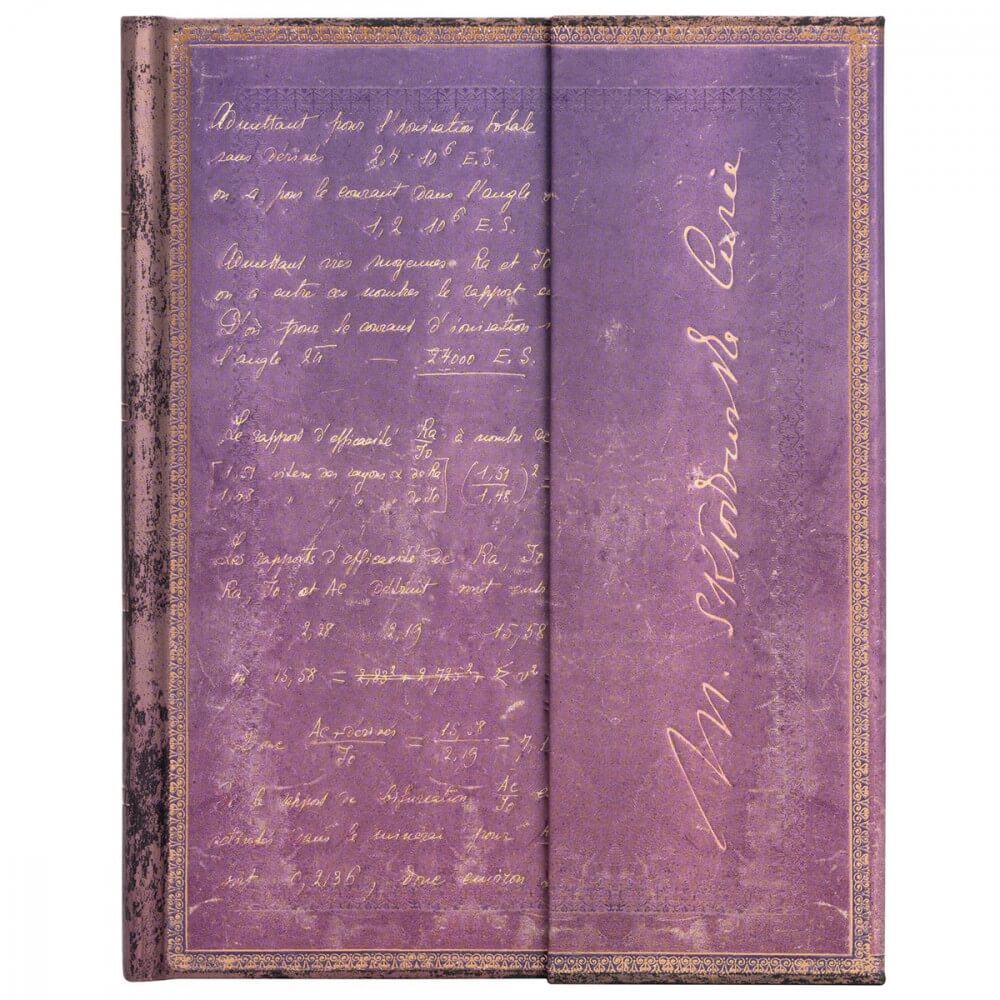 Admettant pour l'ionisation totale
sans dérivés 2,4 · 10⁶ E.S.
on a, pour le courant dans l'angle
1,2 10⁶ E.S.
Admettant moyennes Ra et Io
on a entre ces nombres le rapport
D'où pour le courant d'ionisation
l'angle 2π — 77000 E.S.
Le rapport d'efficacité Ra/Io à nombre de
[1,51 vitesse des rayons α de Ra] (1,51/1,48)² =
1,48 " " " de Io
Les rapports d'efficacité de Ra, Io
Ra, Io et Ac Déduit sont
2,28 2,19 15,58
15,58 = v²
Donc Ac + dérivés/Io = 15,58/2,19 = 7,1
le rapport de bifurcation Ac/Io
dans le minerai pour
soit 0,2136, donc environ
M. Skłodowska Curie